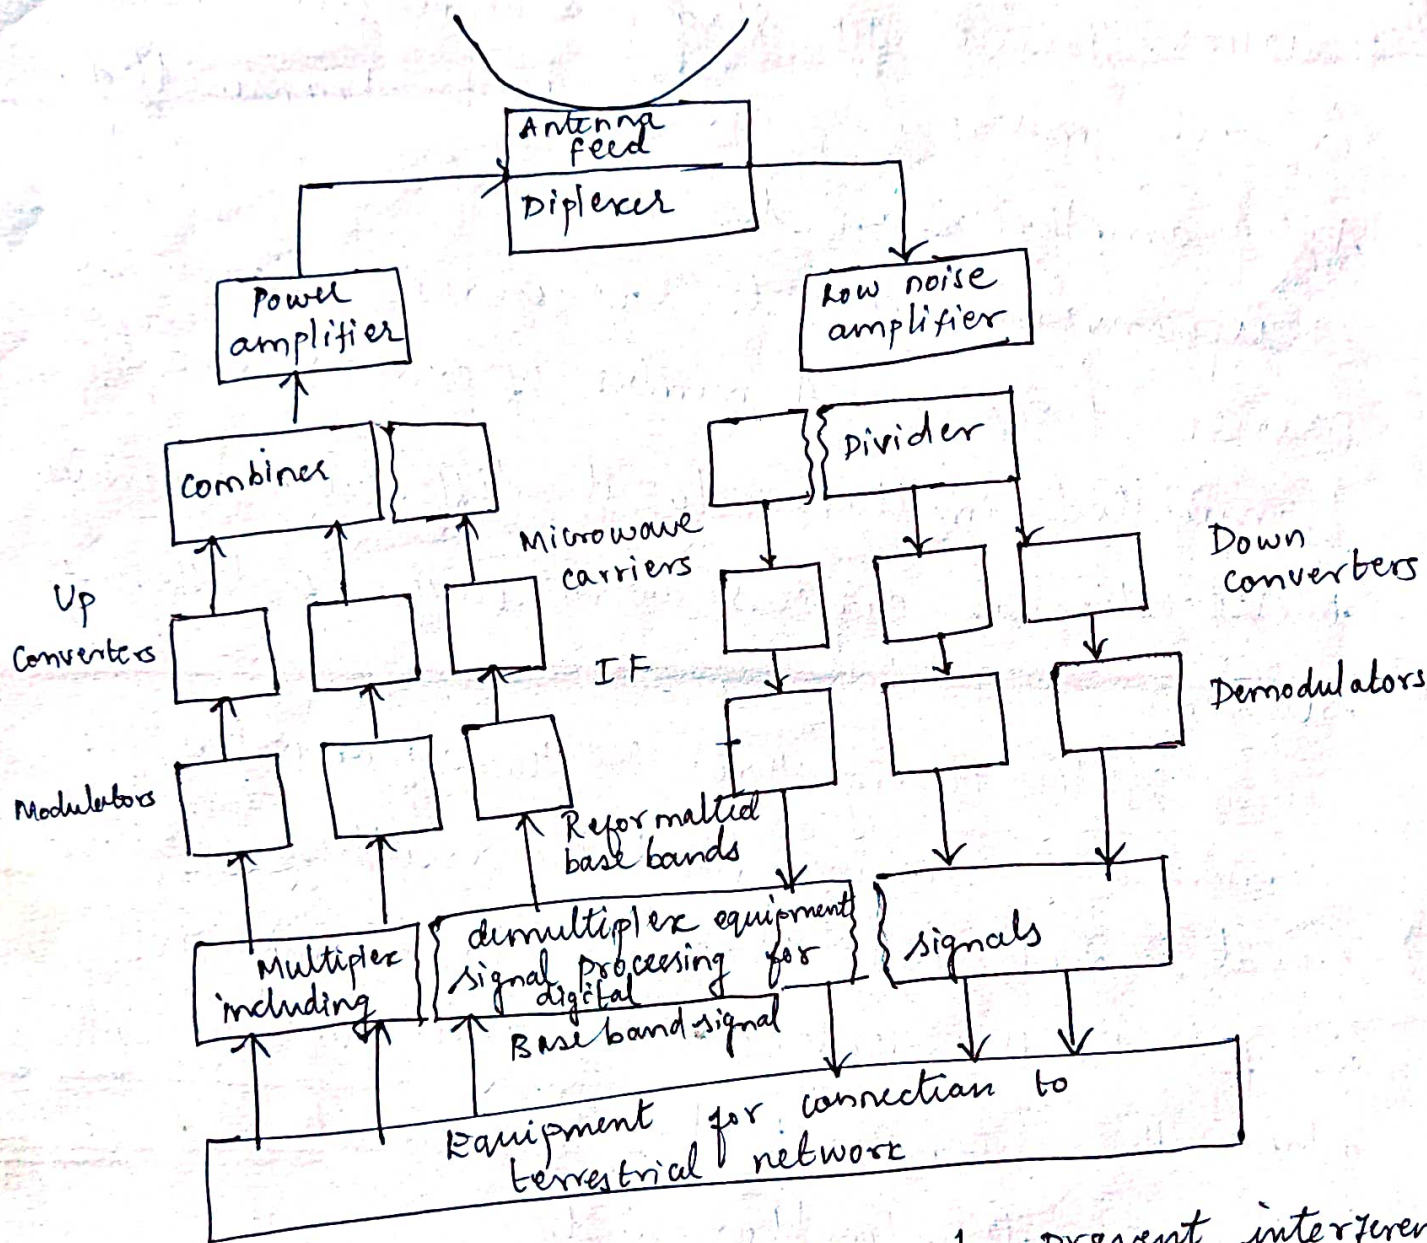 Antenna
feed
Diplexer
Power
amplifier
Low noise
amplifier
Combiner
Divider
Microwave
carriers
Up
Converters
Down
converters
IF
Demodulators
Modulators
Reformatted
base bands
Multiplex
including
demultiplex equipment
signal processing for
digital
signals
Base band signal
Equipment for connection to
terrestrial network
prevent